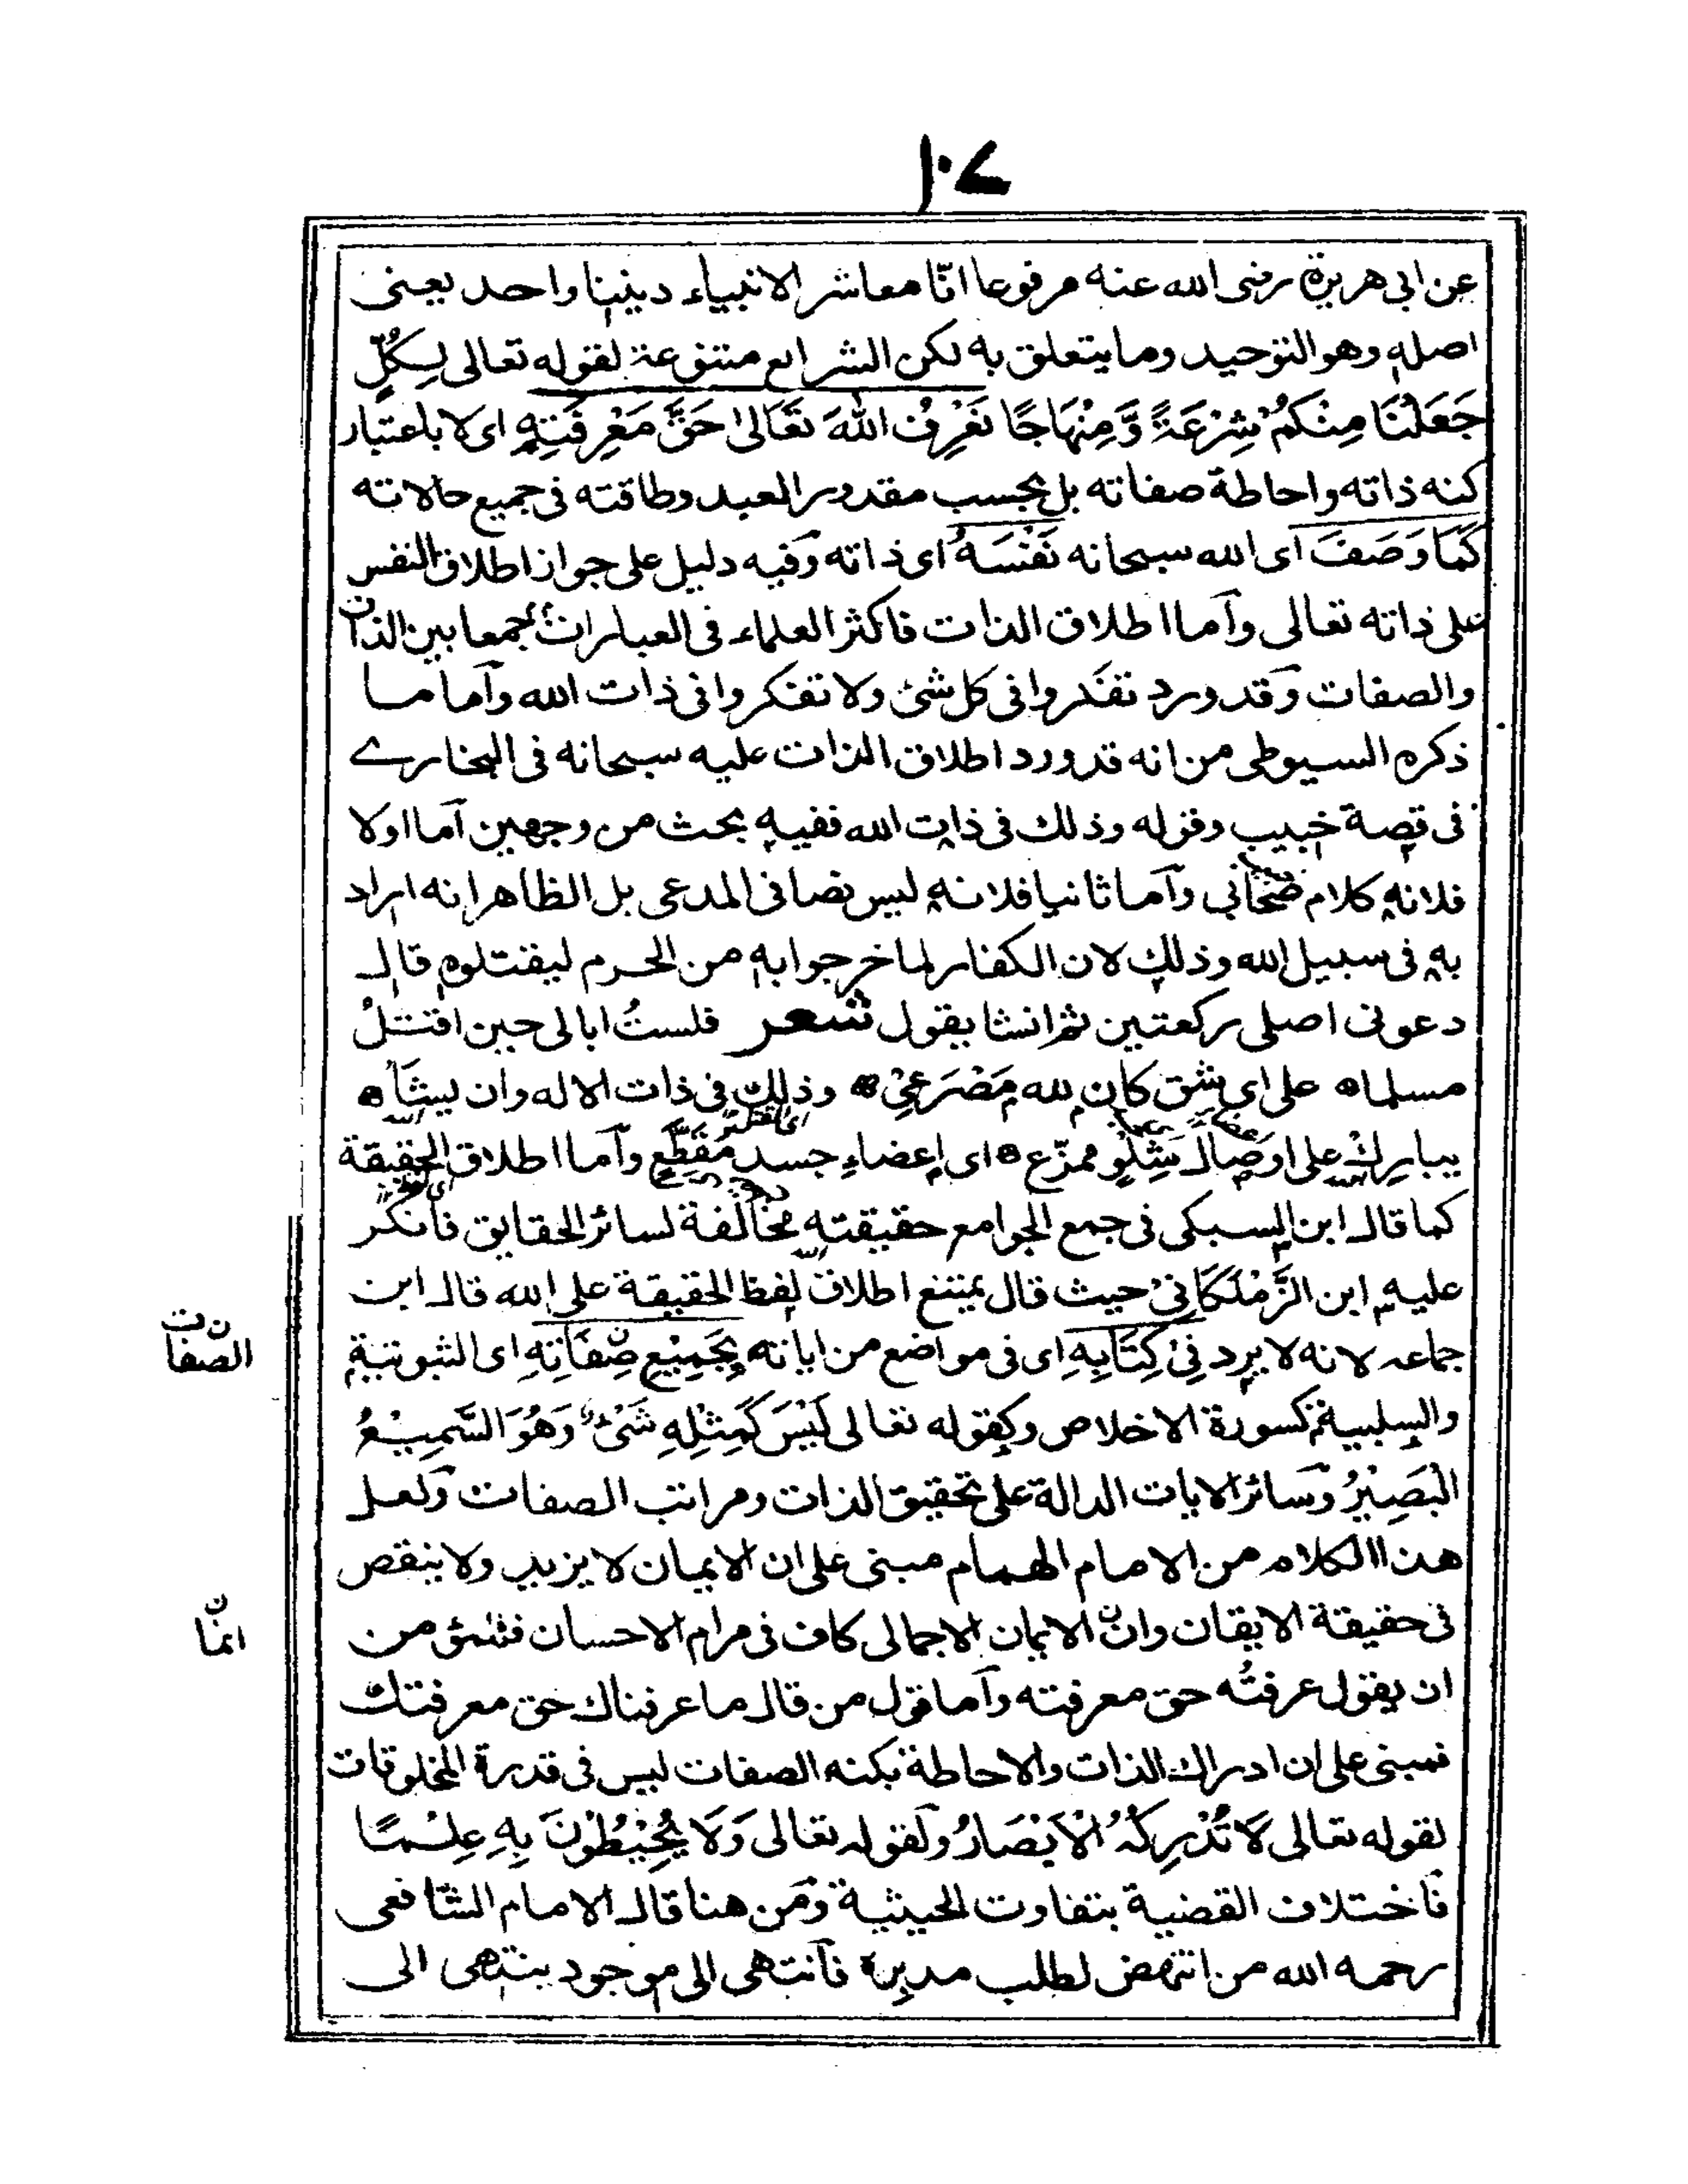 ١٠٧
عن ابى هريرة رضى الله عنه مرفوعا انّا معاشر الانبياء ديننا واحد يعنى
اصله وهو التوحيد وما يتعلق به لكن الشرايع متنوعة لقوله تعالى لِكُلٍّ
جَعَلْنَا مِنْكُمْ شِرْعَةً وَّمِنْهَاجًا نَعْرِفُ اللهَ تَعَالىٰ حَقَّ مَعْرِفَتِهِ اى لا باعتبار
كنه ذاته واحاطة صفاته بل بحسب مقدور العبد وطاقته فى جميع حالاته
كَمَا وَصَفَ اى الله سبحانه نَفْسَهُ اى ذاته وفيه دليل على جواز اطلاق النفس
على ذاته تعالى وآما اطلاق الذات فاكثر العلماء فى العبارات جمعا بين الذات
والصفات وقد ورد تفكروا فى كل شئ ولا تفكروا فى ذات الله وآما ما
ذكره السيوطى من انه قد ورد اطلاق الذات عليه سبحانه فى البخارے
فى قصة خبيب وقوله وذلك فى ذات الله ففيه بحث من وجهين آما اولا
فلانه كلام صحابى وآما ثانيا فلانه ليس نصا فى المدعى بل الظاهر انه اراد
به فى سبيل الله وذلك لان الكفار لما خرجوا به من الحرم ليقتلوه قال
دعونى اصلى ركعتين ثم انشا يقول شعر فلستُ ابالى حين اقتلُ
مسلما ه على اى شق كان لله مَصْرَعِىْ ه وذلك فى ذات الاله وان يشأ ه
يبارك على اوصال شِلْوٍ ممزّع ه اى اعضاء جسد مُقَطَّعٍ وآما اطلاق الحقيقة
كما قال ابن السبكى فى جمع الجوامع حقيقته مخالفة لسائر الحقايق فانكر
عليه ابن الزَّمْلَكَانِىْ حيث قال يمتنع اطلاق لفظ الحقيقة على الله قال ابن
جماعه لانه لا يرد فِىْ كِتَابِهِ اى فى مواضع من اياته بِجَمِيْعِ صِفَاتِهِ اى الثبوتية
والسلبية كسورة الاخلاص وكقوله تعالى لَيْسَ كَمِثْلِهِ شَىْءٌ وَهُوَ السَّمِيْعُ
الْبَصِيْرُ وسائر الايات الدالة على تحقيق الذات ومراتب الصفات ولعل
هذا الكلام من الامام الهمام مبنى على ان الايمان لا يزيد ولا ينقص
فى حقيقة الايقان وان الايمان الاجمالى كاف فى مرام الاحسان من
ان يقول عرفتُه حق معرفته وآما قول من قال ما عرفناك حق معرفتك
فمبنى على ان ادراك الذات والاحاطة بكنه الصفات ليس فى قدرة المخلوقات
لقوله تعالى لَا تُدْرِكُهُ الْاَبْصَارُ ولقوله تعالى وَلَا يُحِيْطُوْنَ بِهِ عِلْمًا
فاختلاف القضية بتفاوت الحيثية ومن هنا قال الامام الشافعى
رحمه الله من انتهض لطلب مدبره فانتهى الى موجود ينتهى الى
الصفا